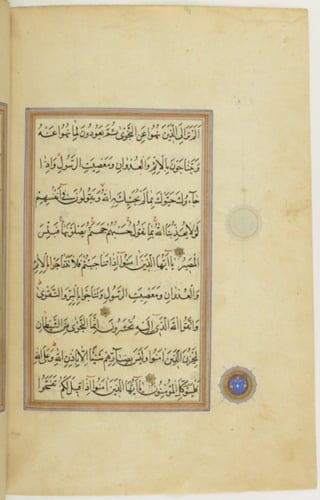 الم تر الى الذين نهوا عن النجوى ثم يعودون لما نهوا عنه
ويتناجون بالاثم والعدوان ومعصيت الرسول واذا
جاءوك حيوك بما لم يحيك به الله ويقولون في انفسهم
لولا يعذبنا الله بما نقول حسبهم جهنم يصلونها فبئس
المصير يا ايها الذين امنوا اذا تناجيتم فلا تتناجوا بالاثم
والعدوان ومعصيت الرسول وتناجوا بالبر والتقوى
واتقوا الله الذي اليه تحشرون انما النجوى من الشيطان
ليحزن الذين امنوا وليس بضارهم شيئا الا باذن الله وعلى الله
فليتوكل المؤمنون يا ايها الذين امنوا اذا قيل لكم تفسحوا